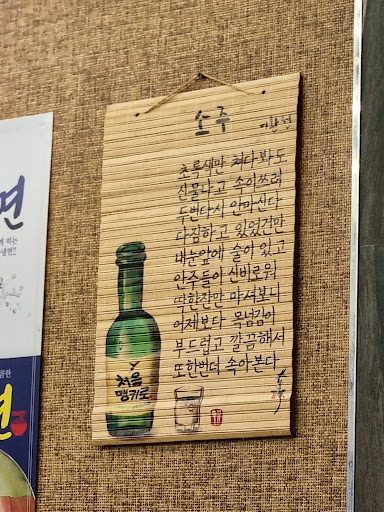 소주
이환천
초록색만 쳐다봐도
신물나고 속이쓰려
두번다시 안마신다
다짐하고 있었건만
내눈앞에 술이있고
안주들이 신비로워
딱한잔만 마셔보니
어제보다 목넘김이
부드럽고 깔끔해서
또한번더 속아본다
처음
맹키로
면
면